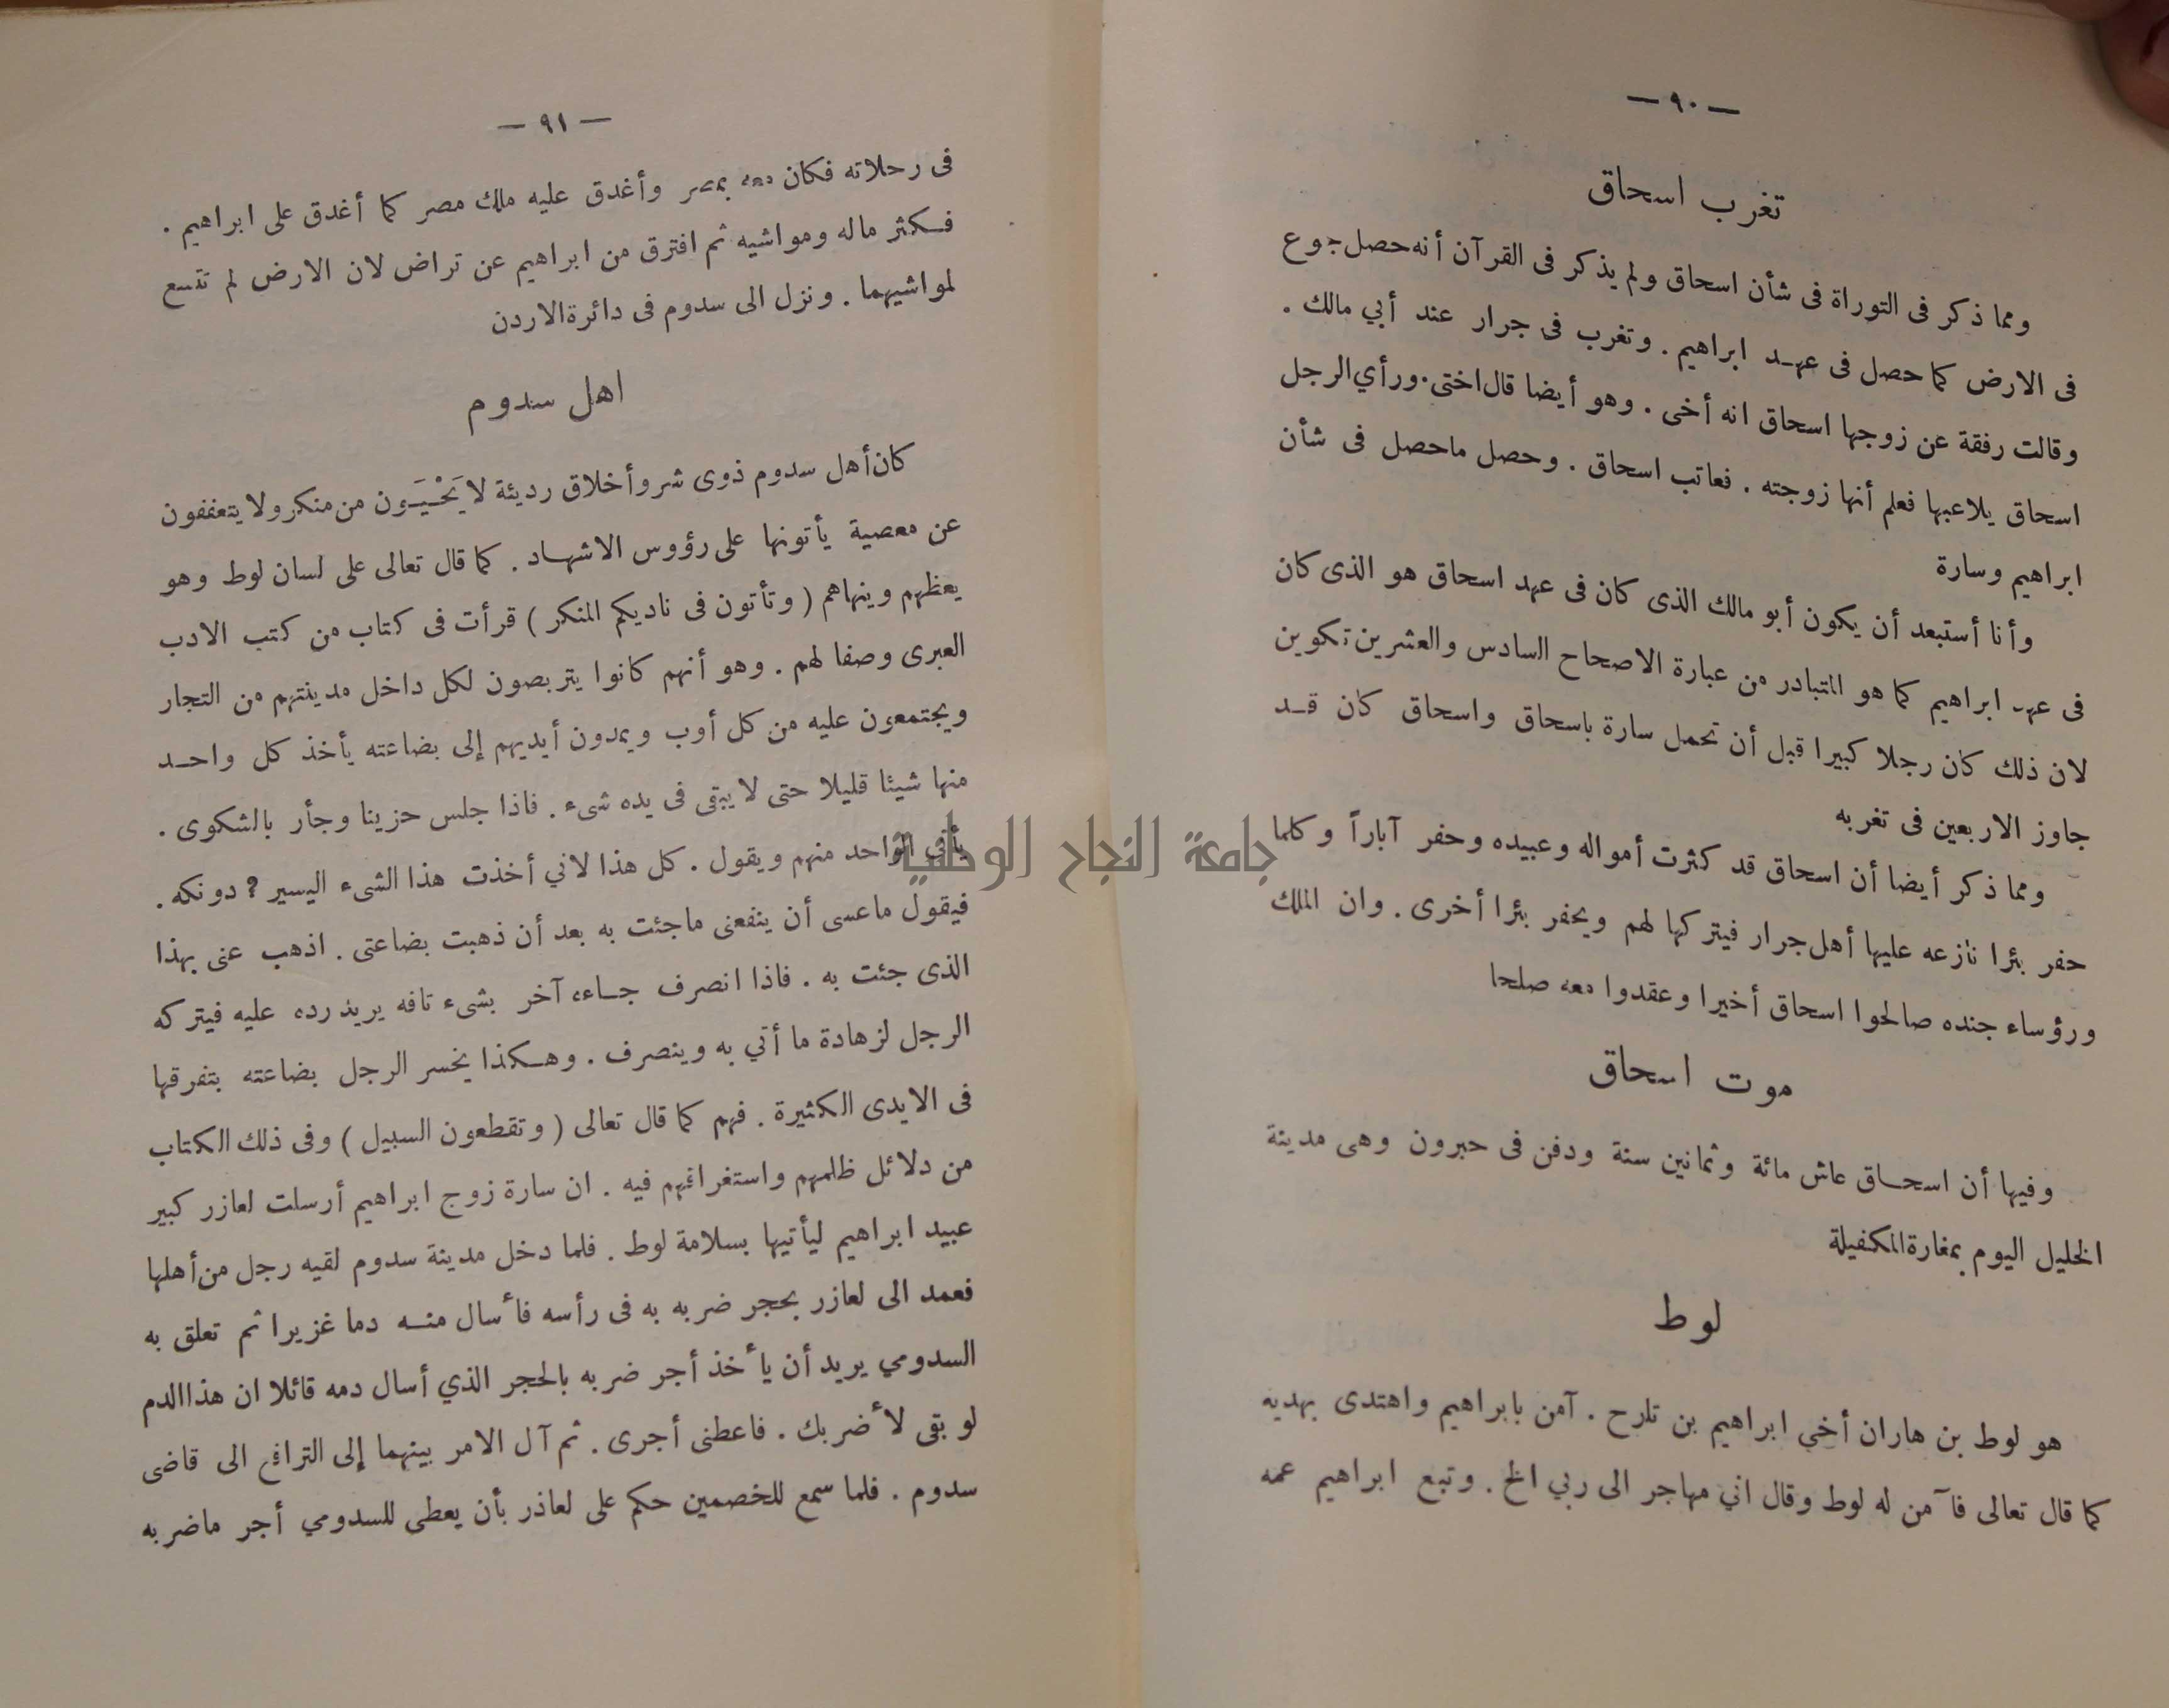 — ٩٠ —
تغرب اسحاق
ومما ذكر فى التوراة فى شأن اسحاق ولم يذكر فى القرآن أنه حصل جوع
فى الارض كما حصل فى عهد ابراهيم . وتغرب فى جرار عند أبي مالك .
وقالت رفقة عن زوجها اسحاق انه أخى . وهو أيضا قال اختى . ورأي الرجل
اسحاق يلاعبها فعلم أنها زوجته . فعاتب اسحاق . وحصل ماحصل فى شأن
ابراهيم وسارة
وأنا أستبعد أن يكون أبو مالك الذى كان فى عهد اسحاق هو الذى كان
فى عهد ابراهيم كما هو المتبادر من عبارة الاصحاح السادس والعشرين تكوين
لان ذلك كان رجلا كبيرا قبل أن تحمل سارة باسحاق واسحاق كان قد
جاوز الاربعين فى تغربه
ومما ذكر أيضا أن اسحاق قد كثرت أمواله وعبيده وحفر آباراً وكلما
حفر بئرا نازعه عليها أهل جرار فيتركها لهم ويحفر بئرا أخرى . وان الملك
ورؤساء جنده صالحوا اسحاق أخيرا وعقدوا معه صلحا
موت اسحاق
وفيها أن اسحاق عاش مائة وثمانين سنة ودفن فى حبرون وهى مدينة
الخليل اليوم بمغارة المكفيلة
لوط
هو لوط بن هاران أخي ابراهيم بن تارح . آمن بابراهيم واهتدى بهديه
كما قال تعالى فآمن له لوط وقال اني مهاجر الى ربي الخ . وتبع ابراهيم عمه
— ٩١ —
فى رحلاته فكان معه بمصر وأغدق عليه ملك مصر كما أغدق على ابراهيم .
فكثر ماله ومواشيه ثم افترق من ابراهيم عن تراض لان الارض لم تتسع
لمواشيهما . ونزل الى سدوم فى دائرة الاردن
اهل سدوم
كان أهل سدوم ذوى شر وأخلاق رديئة لا يَحْيَون من منكر ولا يتعففون
عن معصية يأتونها على رؤوس الاشهاد . كما قال تعالى على لسان لوط وهو
يعظهم وينهاهم ( وتأتون فى ناديكم المنكر ) قرأت فى كتاب من كتب الادب
العبرى وصفا لهم . وهو أنهم كانوا يتربصون لكل داخل مدينتهم من التجار
ويجتمعون عليه من كل أوب ويمدون أيديهم إلى بضاعته يأخذ كل واحد
منها شيئا قليلا حتى لا يبقى فى يده شىء . فاذا جلس حزينا وجأر بالشكوى .
يأتي الواحد منهم ويقول . كل هذا لاني أخذت هذا الشىء اليسير ؟ دونكه .
فيقول ما عسى أن ينفعنى ماجئت به بعد أن ذهبت بضاعتى . اذهب عنى بهذا
الذى جئت به . فاذا انصرف جاءه آخر بشىء تافه يريد رده عليه فيتركه
الرجل لزهادة ما أتي به وينصرف . وهكذا يخسر الرجل بضاعته بتفرقها
فى الايدى الكثيرة . فهم كما قال تعالى ( وتقطعون السبيل ) وفى ذلك الكتاب
من دلائل ظلمهم واستغراقهم فيه . ان سارة زوج ابراهيم أرسلت لعازر كبير
عبيد ابراهيم ليأتيها بسلامة لوط . فلما دخل مدينة سدوم لقيه رجل من أهلها
فعمد الى لعازر بحجر ضربه به فى رأسه فأسال منه دما غزيرا ثم تعلق به
السدومي يريد أن يأخذ أجر ضربه بالحجر الذي أسال دمه قائلا ان هذا الدم
لو بقى لأضربك . فاعطنى أجرى . ثم آل الامر بينهما إلى الترافع الى قاضى
سدوم . فلما سمع للخصمين حكم على لعاذر بأن يعطى للسدومي أجر ماضربه
جامعة النجاح الوطنية